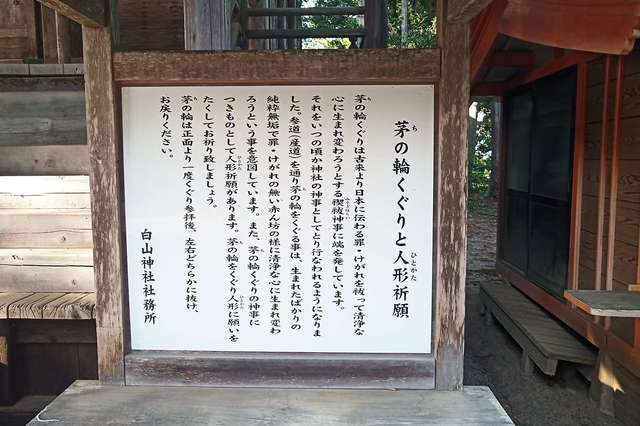 茅の輪くぐりと人形祈願
茅の輪くぐりは古来より日本に伝わる罪・けがれを祓って清浄な
心に生まれ変わろうとする禊祓神事に端を発しています。
それをいつの頃か神社の神事としてとり行なわれるようになりま
した。参道(産道)を通り茅の輪をくぐる事は、生まれたばかりの
純粋無垢で罪・けがれの無い赤ん坊の様に清浄な心に生まれ変わ
ろうという事を意図しています。また、茅の輪くぐりの神事に
つきものとして人形祈願があります。茅の輪をくぐり人形に願いを
たくしてお祈り致しましょう。
茅の輪は正面より一度くぐり参拝後、左右どちらかに抜け
お戻りください。
白山神社社務所